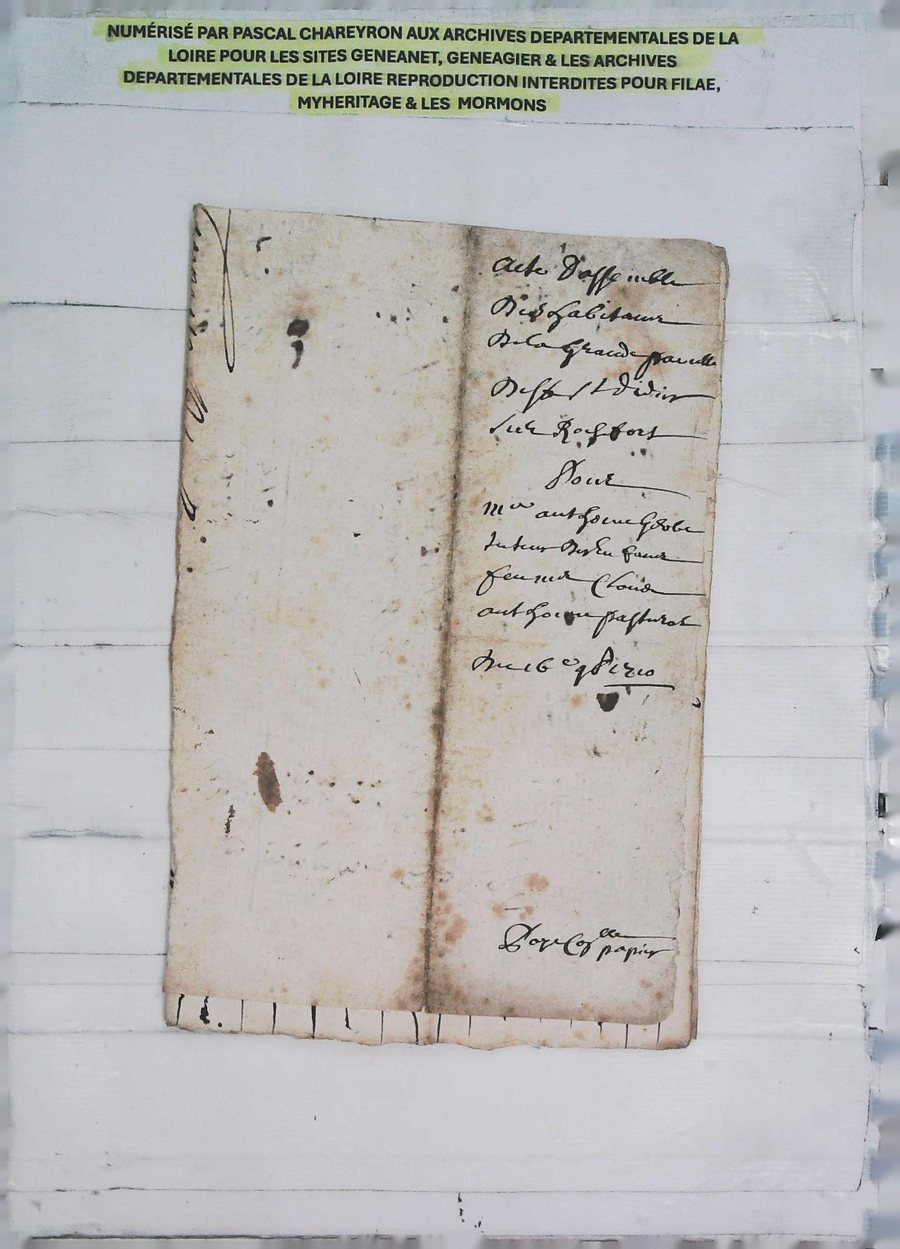 NUMÉRISÉ PAR PASCAL CHAREYRON AUX ARCHIVES DEPARTEMENTALES DE LA
LOIRE POUR LES SITES GENEANET, GENEAGIER & LES ARCHIVES
DEPARTEMENTALES DE LA LOIRE REPRODUCTION INTERDITES POUR FILAE,
MYHERITAGE & LES MORMONS
Acte D'assemblee
Des habitans
De la Grande
St Didier
sur Rochfort
Pour
Mre anthoine
tuteur Des Enfans
feu me Claude
anthoine pasturel
Du 16e 9b 1710
papier